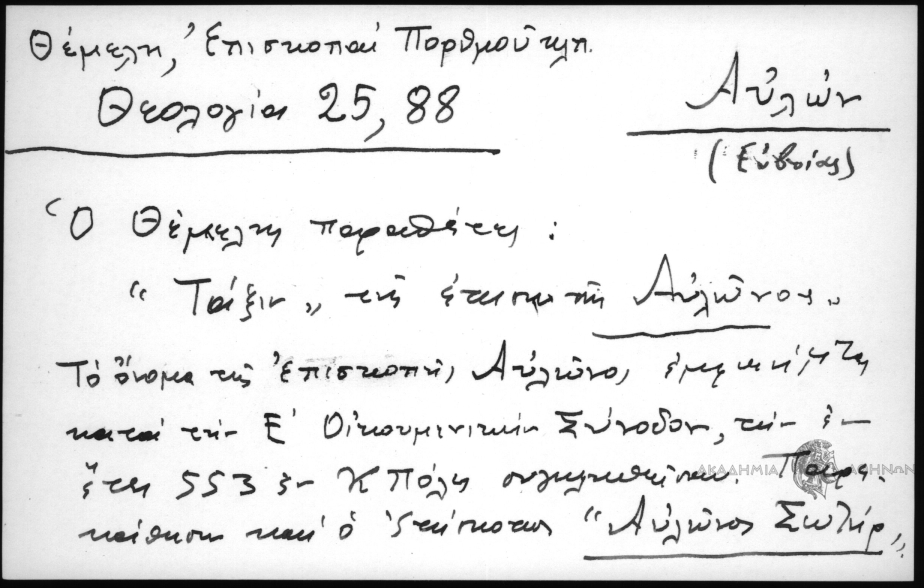 Θέμελη, Ἐπισκοπαὶ Πορθμοῦ κλπ.
Θεολογία 25, 88
Αὐλών
(Εὐβοίας)
Ὁ Θέμελης παραθέτει :
“ Τάξιν „ τῆς Αὐλῶνος „
Τὸ ὄνομα τῆς Ἐπισκοπῆς Αὐλῶνος ἐμφανίζεται
κατὰ τὴν Ε' Οἰκουμενικὴν Σύνοδον, τὴν ἐν
ἔτει 553 ἐν ΚΠόλει συγκληθεῖσαν. Παρε-
κάθησεν καὶ ὁ ἐπίσκοπος “ Αὐλῶνος Σωτήρ „
ΑΚΑΔΗΜΙΑ ΑΘΗΝΩΝ